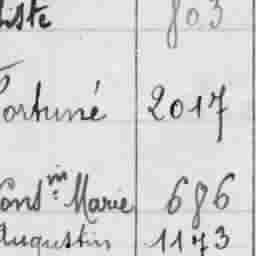 iste 803
Fortuné 2017
Const.in Marie 686
Augustin 1173